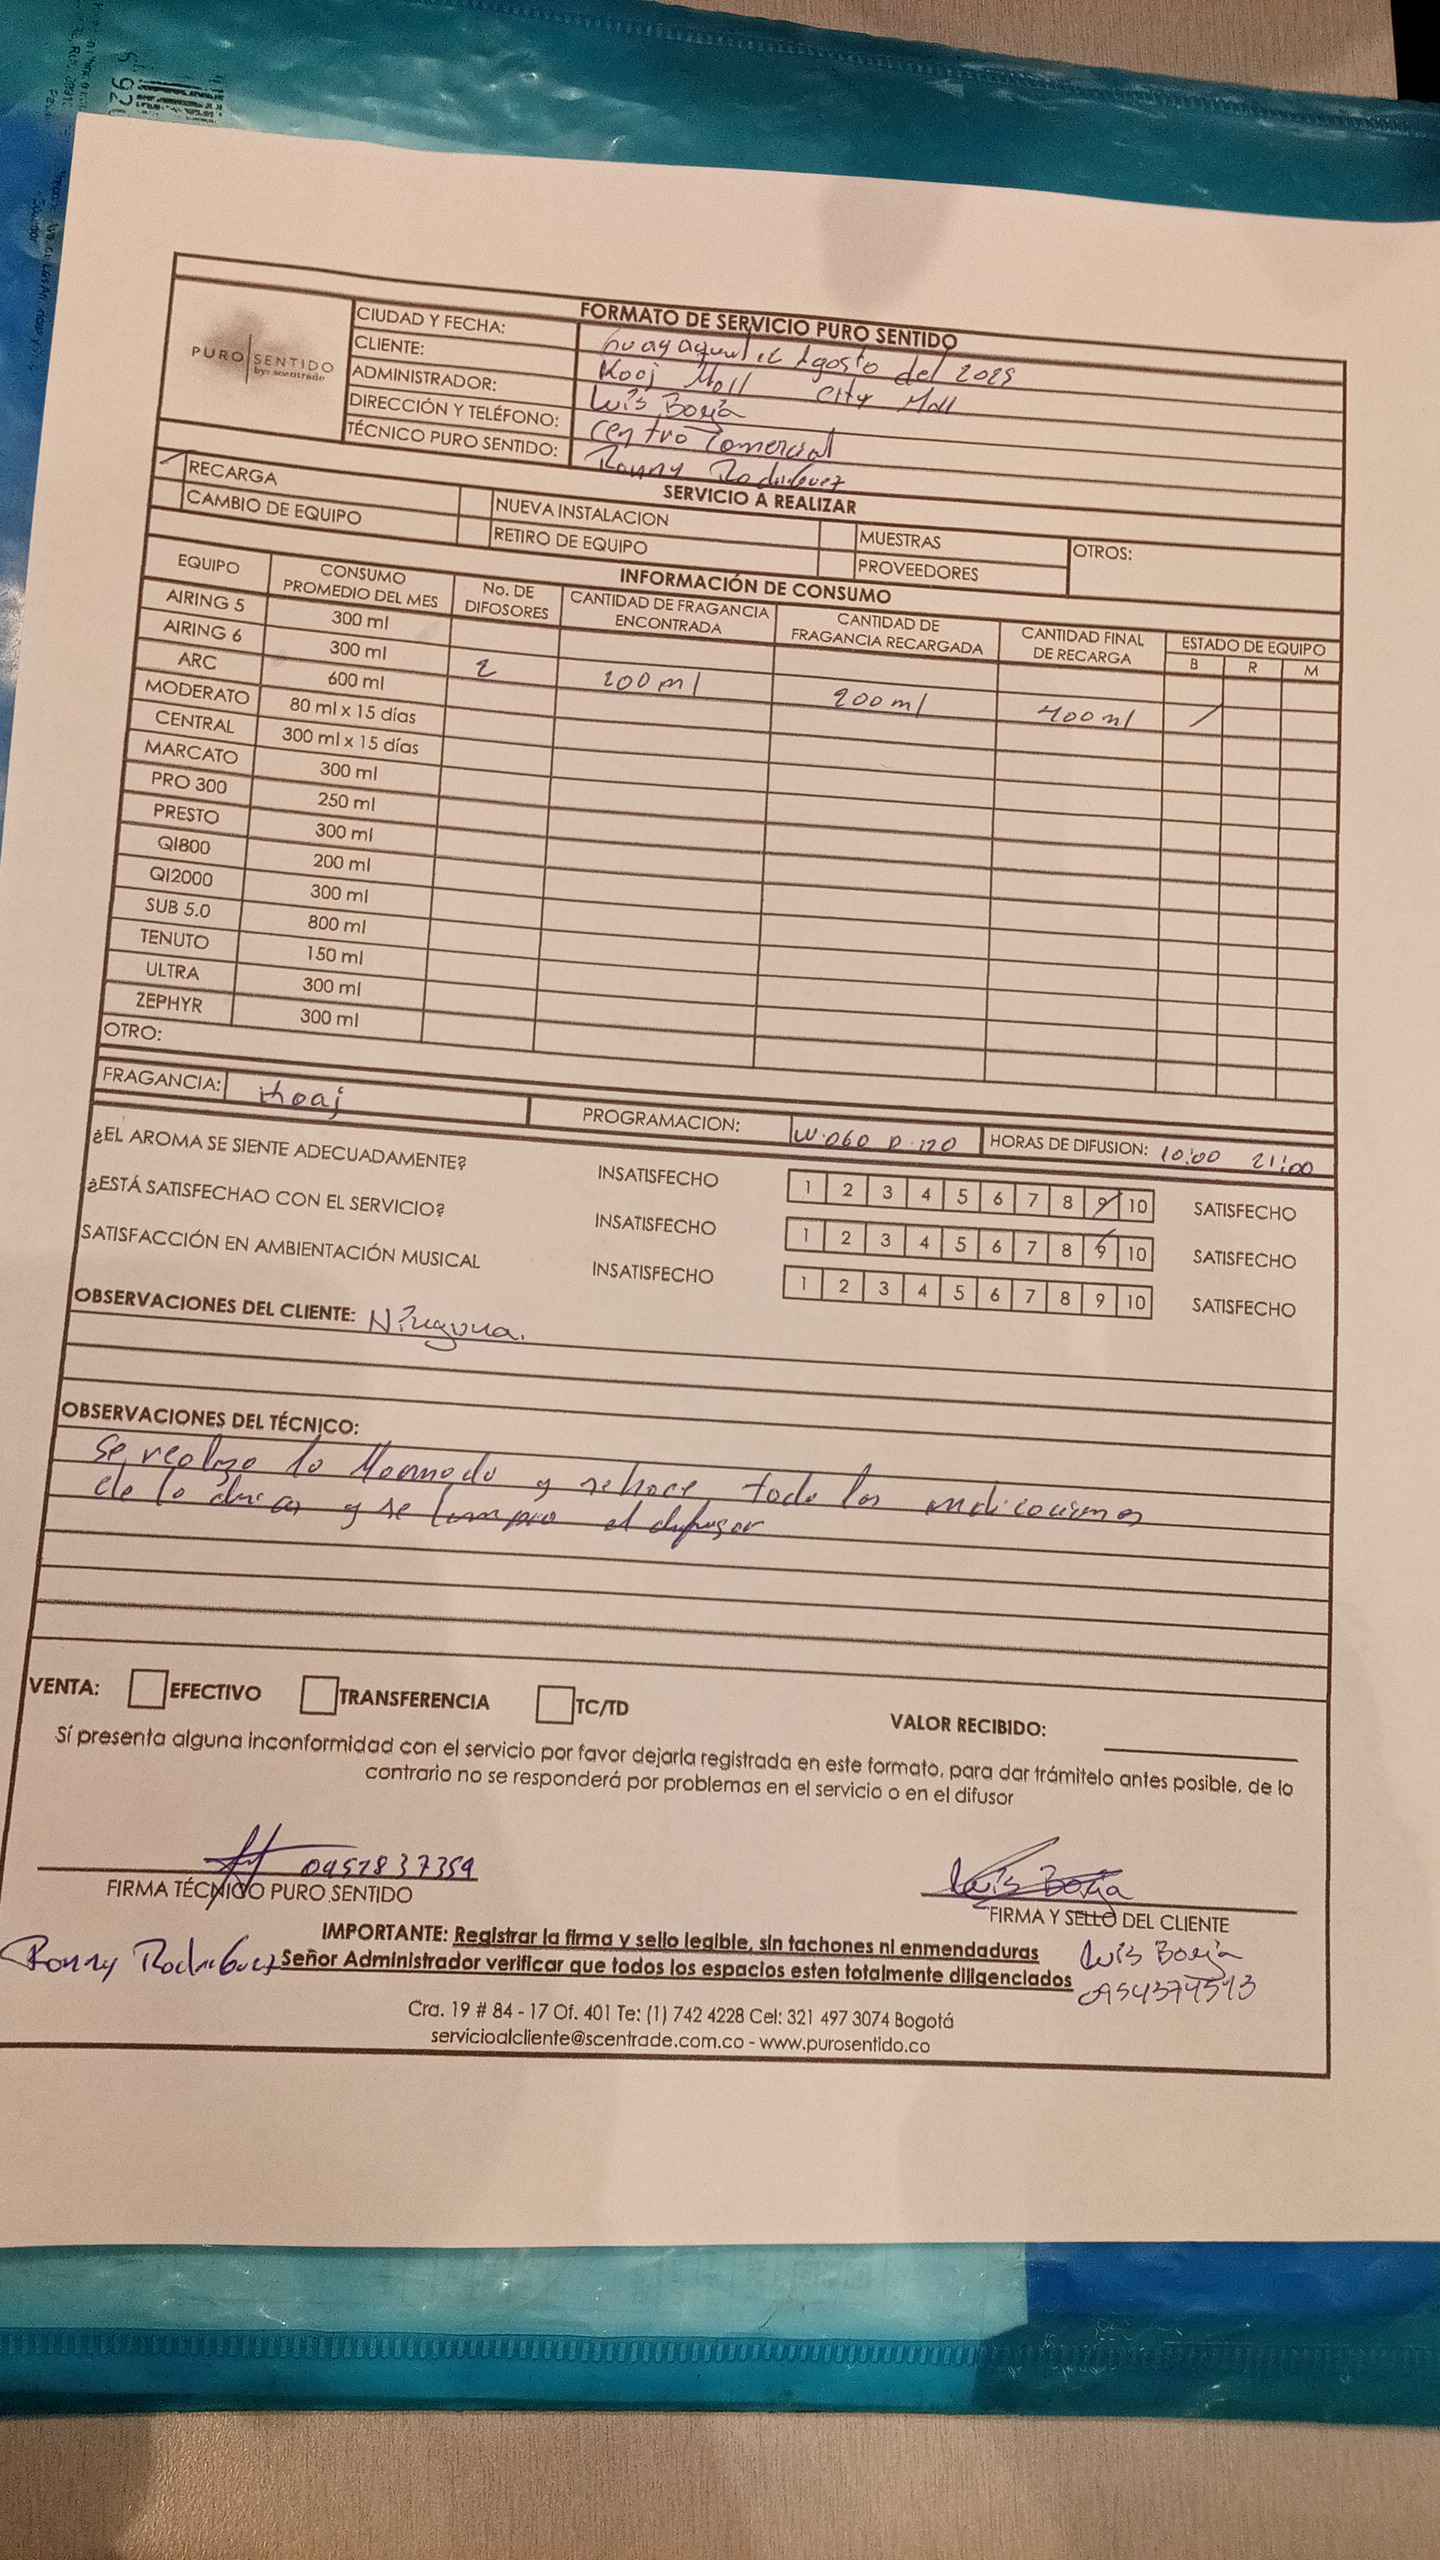 FORMATO DE SERVICIO PURO SENTIDO
PURO SENTIDO
by: scentrade
CIUDAD Y FECHA: Guayaquil Agosto del 2025
CLIENTE: Kooj Mall City Mall
ADMINISTRADOR: Luis Borja
DIRECCIÓN Y TELÉFONO: Centro Comercial
TÉCNICO PURO SENTIDO: Ronny Rodriguez
SERVICIO A REALIZAR
RECARGA NUEVA INSTALACION MUESTRAS OTROS:
CAMBIO DE EQUIPO RETIRO DE EQUIPO PROVEEDORES
INFORMACIÓN DE CONSUMO
EQUIPO CONSUMO PROMEDIO DEL MES No. DE DIFOSORES CANTIDAD DE FRAGANCIA ENCONTRADA CANTIDAD DE FRAGANCIA RECARGADA CANTIDAD FINAL DE RECARGA ESTADO DE EQUIPO
B R M
AIRING 5 300 ml
AIRING 6 300 ml
ARC 600 ml 2 200 ml 200 ml 400 ml
MODERATO 80 ml x 15 días
CENTRAL 300 ml x 15 días
MARCATO 300 ml
PRO 300 250 ml
PRESTO 300 ml
QI800 200 ml
QI2000 300 ml
SUB 5.0 800 ml
TENUTO 150 ml
ULTRA 300 ml
ZEPHYR 300 ml
OTRO:
FRAGANCIA: PROGRAMACION: W.060 P.120 HORAS DE DIFUSION: 10:00 21:00
¿EL AROMA SE SIENTE ADECUADAMENTE? INSATISFECHO 1 2 3 4 5 6 7 8 9 10 SATISFECHO
¿ESTÁ SATISFECHAO CON EL SERVICIO? INSATISFECHO 1 2 3 4 5 6 7 8 9 10 SATISFECHO
SATISFACCIÓN EN AMBIENTACIÓN MUSICAL INSATISFECHO 1 2 3 4 5 6 7 8 9 10 SATISFECHO
OBSERVACIONES DEL CLIENTE: Ninguna.
OBSERVACIONES DEL TÉCNICO:
se realizo lo y se hace todo las indicaciones
de lo y se limpio el difusor
VENTA: EFECTIVO TRANSFERENCIA TC/TD VALOR RECIBIDO:
Sí presenta alguna inconformidad con el servicio por favor dejarla registrada en este formato, para dar trámitelo antes posible, de lo
contrario no se responderá por problemas en el servicio o en el difusor
Luis Borja
FIRMA TÉCNICO PURO SENTIDO FIRMA Y SELLO DEL CLIENTE
IMPORTANTE: Registrar la firma y sello legible, sin tachones ni enmendaduras Luis Borja
Ronny Rodriguez Señor Administrador verificar que todos los espacios esten totalmente diligenciados
Cra. 19 # 84 - 17 Of. 401 Te: (1) 742 4228 Cel: 321 497 3074 Bogotá
servicioalcliente@scentrade.com.co - www.purosentido.co